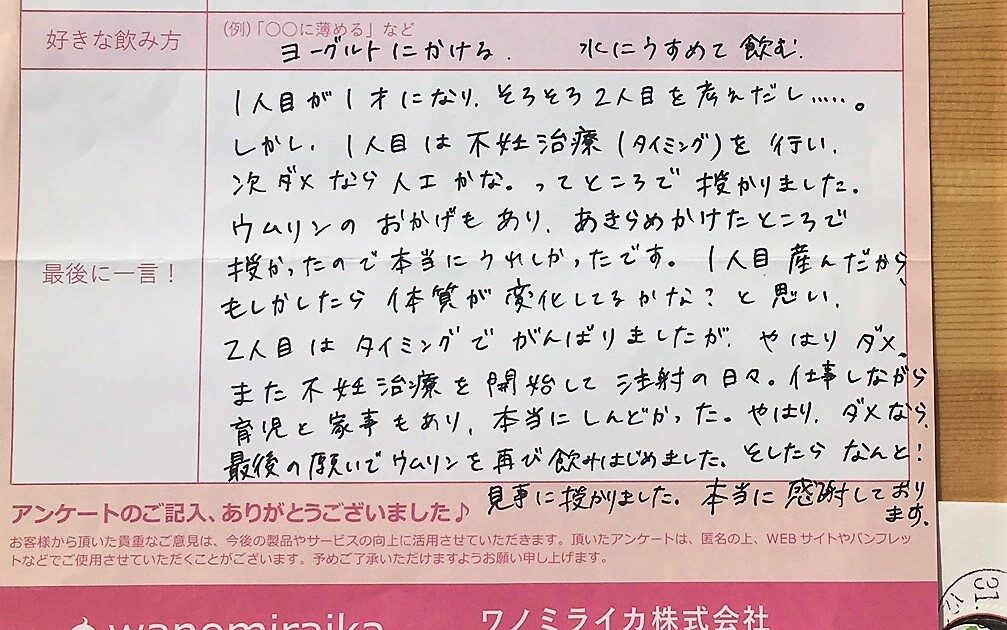 好きな飲み方
(例)「○○に薄める」など
ヨーグルトにかける. 水にうすめて飲む.
最後に一言！
1人目が1才になり、そろそろ2人目を考えだし.....。
しかし、1人目は不妊治療(タイミング)を行い、
次ダメなら人工かな。ってところで授かりました。
ウムリンのおかげもあり、あきらめかけたところで
授かったので本当にうれしかったです。1人目産んだから、
もしかしたら体質が変化してるかな？と思い、
2人目はタイミングでがんばりましたが、やはりダメ、
また不妊治療を開始して注射の日々。仕事しながら
育児と家事もあり、本当にしんどかった。やはり、ダメなら、
最後の願いでウムリンを再び飲みはじめました。そしたらなんと！
見事に授かりました。本当に感謝しており
ます。
アンケートのご記入、ありがとうございました♪
お客様から頂いた貴重なご意見は、今後の製品やサービスの向上に活用させていただきます。頂いたアンケートは、匿名の上、WEBサイトやパンフレッ
トなどでご使用させていただくことがございます。予めご了承いただけますようお願い申し上げます。
wanomiraika
ワノミライカ株式会社
31.